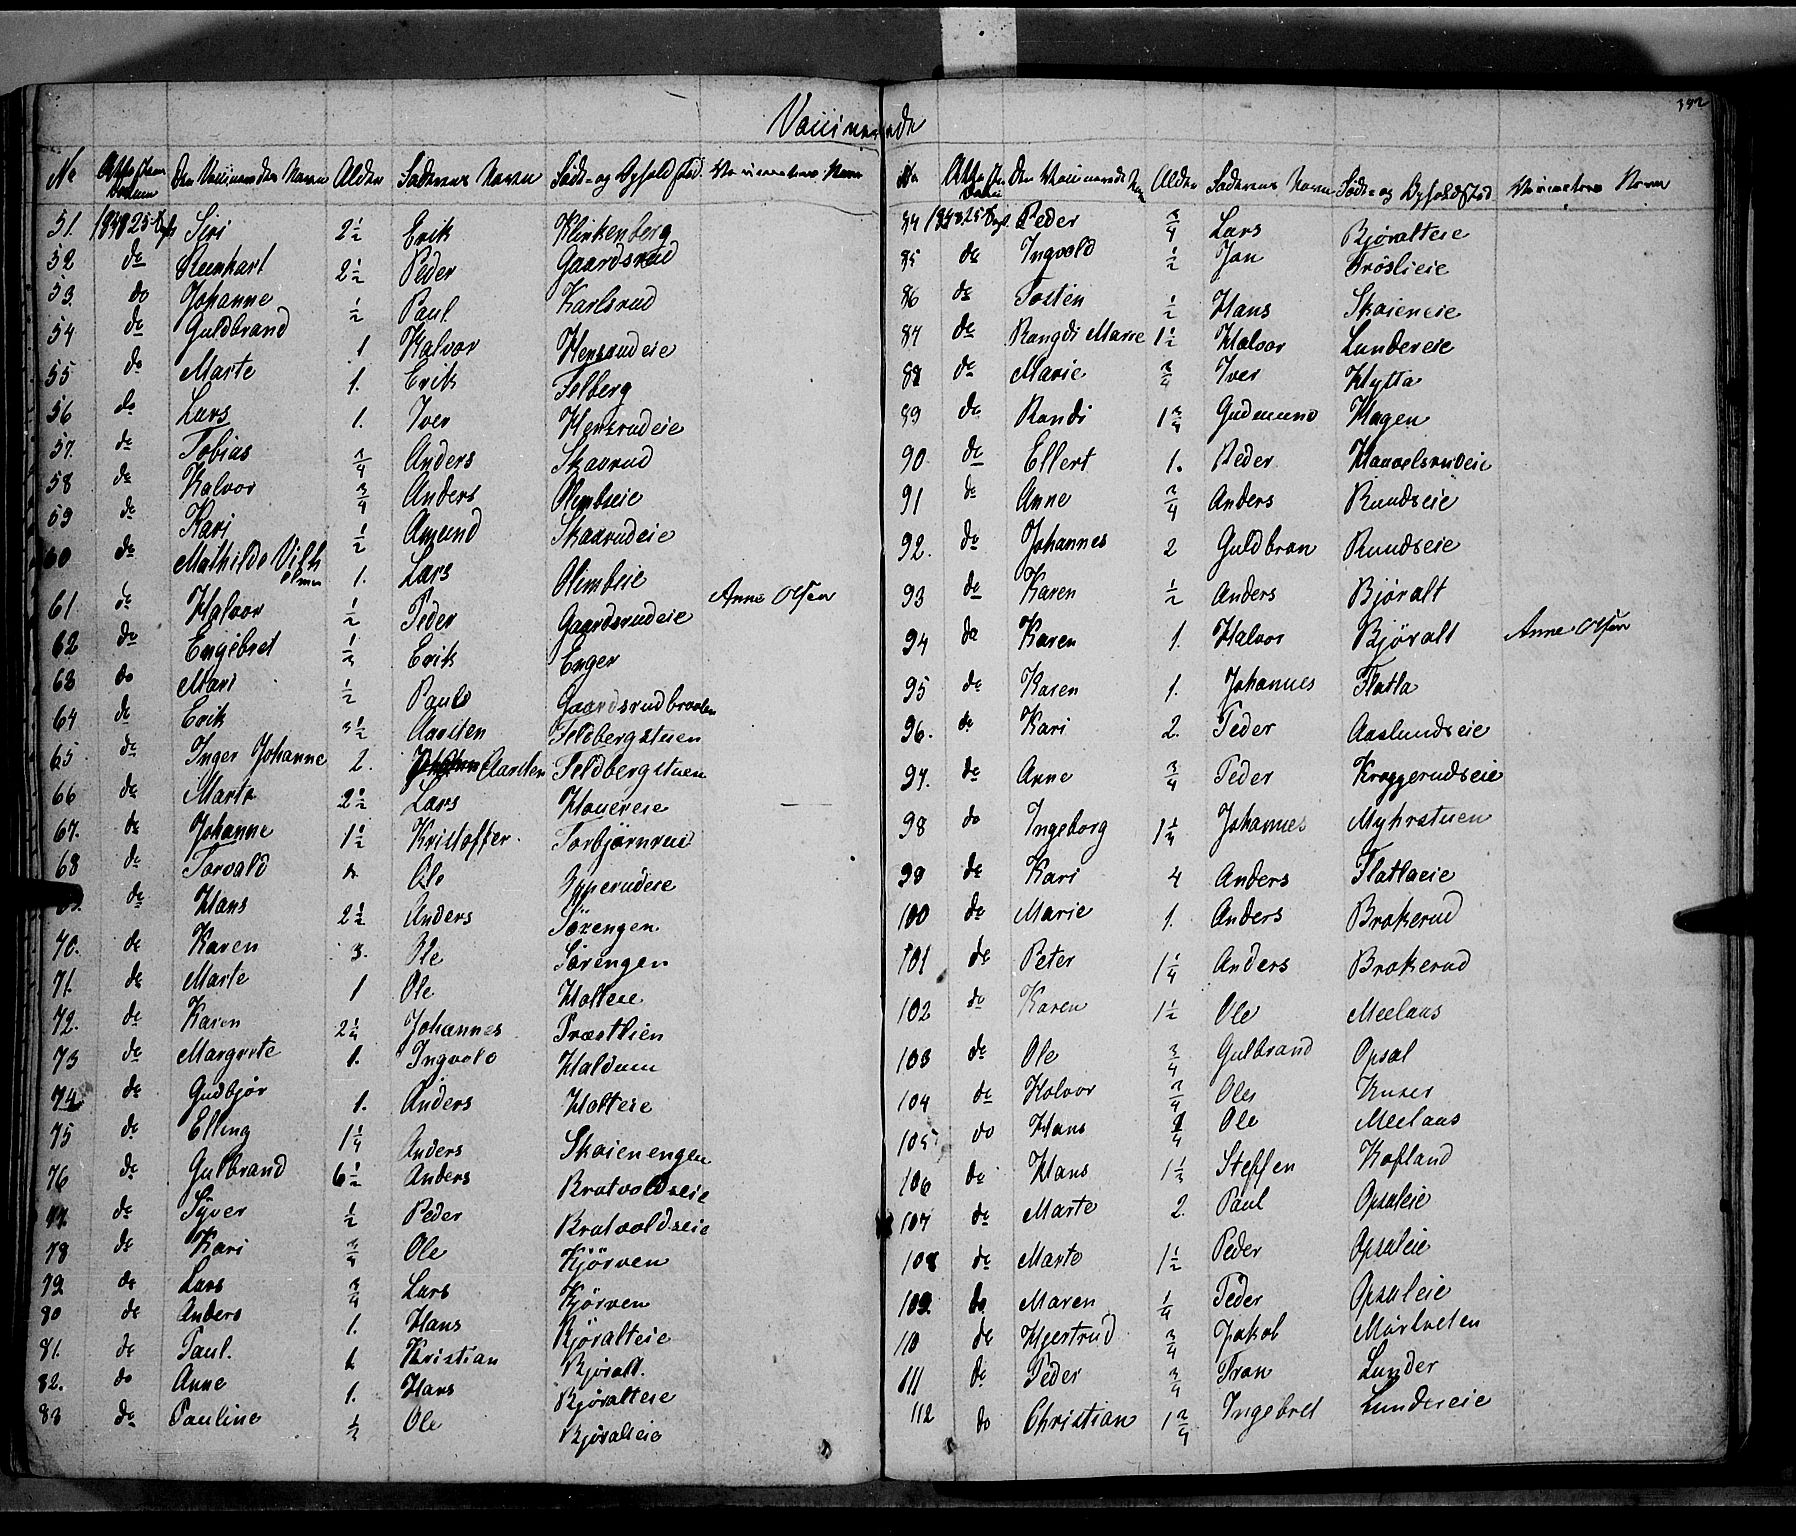 352
Vaccinerede
No Attestens Datum Den Vaccineredes Navn Alder Faderens Navn Føde- og Opholdssted Vaccinateurs Navn
51. 1848 25 Siri 2½ Erik Klinkenberg
52 do Reinhart 2½ Peder Gaardsrud
53. do Johanne ½ Paul Karlsrud
54 do Guldbrand 1 Halvor Hensrudeie
55 do Marte 1. Erik Felberg
56 do Lars 1. Iver Hensrudeie
57. do Tobias ¾ Anders Skaarud
58 do Halvor ¾ Anders Olimbseie
59 do Kari ½ Amund Skaarudeie
60 do Mathilde Vilhelmin 1. Lars Olimbeie
61 do Halvor ½ Peder Gaardsrudeie Anne Olsen
62 do Engebret Erik Enger
63 do Mari ½ Paul Gaardsrudbraaten
64 do Erik Aarsten Feldbergstuen
65 do Inger Johanne 2. Aarsten Feldbergstuen
66 do Marte 2½ Lars Houereie
67. do Johanne 1½ Kristoffer Torbjørnrud
68 do Torvald Ole
69. do Hans 2½ Anders Sørengen
70. do Karen 3. Ole Sørengen
71. do Marte 1 Ole Holteie
72. do Karen 2¼ Johannes Præstlien
73 do Margrete 1. Ingvold Haldum
74. do Gudbjør 1. Anders Holteie
75 do Elling 1¼ Anders Skoienengen
76 do Gulbrand 6½ Anders Bratvoldseie
77. do Syver ½ Peder Bratvoldseie
78 do Kari ¾ Ole Kjörven
79 do Lars ¾ Lars Kjörven
80 do Anders 1. Hans Björalteie
81. do Paul. 1 Kristian Björalt.
82. do Anne 1. Hans Björalteie
83 do Pauline ½ Ole Björalteie
No Attestens Datum Den Vaccineredes Navn Alder Faderens Navn Føde- og Opholdssted Vaccinateurs Navn
84 1848 25 Peder ¾ Lars Björalteie
85 do Ingvold ½ Jon Fröslieie
86 do Tosten ½ Hans Skoieneie
87 do Rangdi Marie 1½ Halvor Lundereie
88 do Marie ¾ Iver Hytta
89 do Randi 1¾ Gudmund Hagen
90. do Ellert 1. Peder Havvelsrudeie
91 do Anne ¾ Anders Rundseie
92. do Johannes 2 Guldbran Rundseie
93 do Karen ½ Anders Björalt
94 do Karen 1. Halvor Björalt Anne Olsen
95 do Karen 1. Johannes Flatla
96. do Kari 2. Peder Aaslundseie
97. do Anne ¾ Peder Kroggerudseie
98 do Ingeborg Johannes Myhrstuen
99 do Kari 4 Anders Flatlaeie
100 do Marie 1. Anders Brokerud
101 do Peter 1¼ Anders Brokerud
102 do Karen 1½ Ole Meelaas
103 do Ole ¾ Gulbrand Opsal
104 do Halvor ¾ Ole
105 do Hans Ole Meelaas
106 do Hans Steffen Kofland
107 do Marte 2. Paul Opsaleie
108 do Marte 1½ Peder Opsaleie
109. do Maren ¼ Peder Opsaleie
110 do Hjertrud ¾ Jakob
111 do Peder ¾ Tron Lunder
112 do Christian 1¾ Ingebret Lundereie